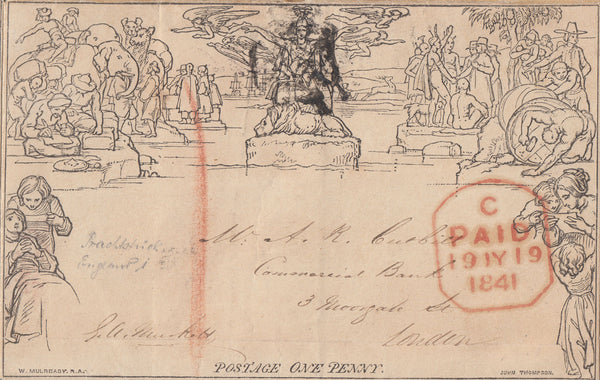 C
PAID
19 IY 19
1841
Mr. A. R.
Commercial Bank
3 Moorgate St
London
England 1
POSTAGE ONE PENNY.
W. MULREADY. R.A.
JOHN THOMPSON.